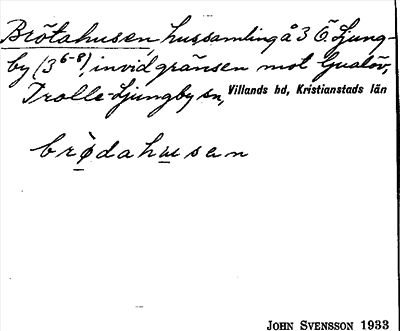 Brötahusen, hussamling å 3 Ö. Ljung-
by (3 6-8), invid gränsen mot Gualöv,
Trolle-Ljungby sn, Villands hd, Kristianstads län
brødahusen
JOHN SVENSSON 1933